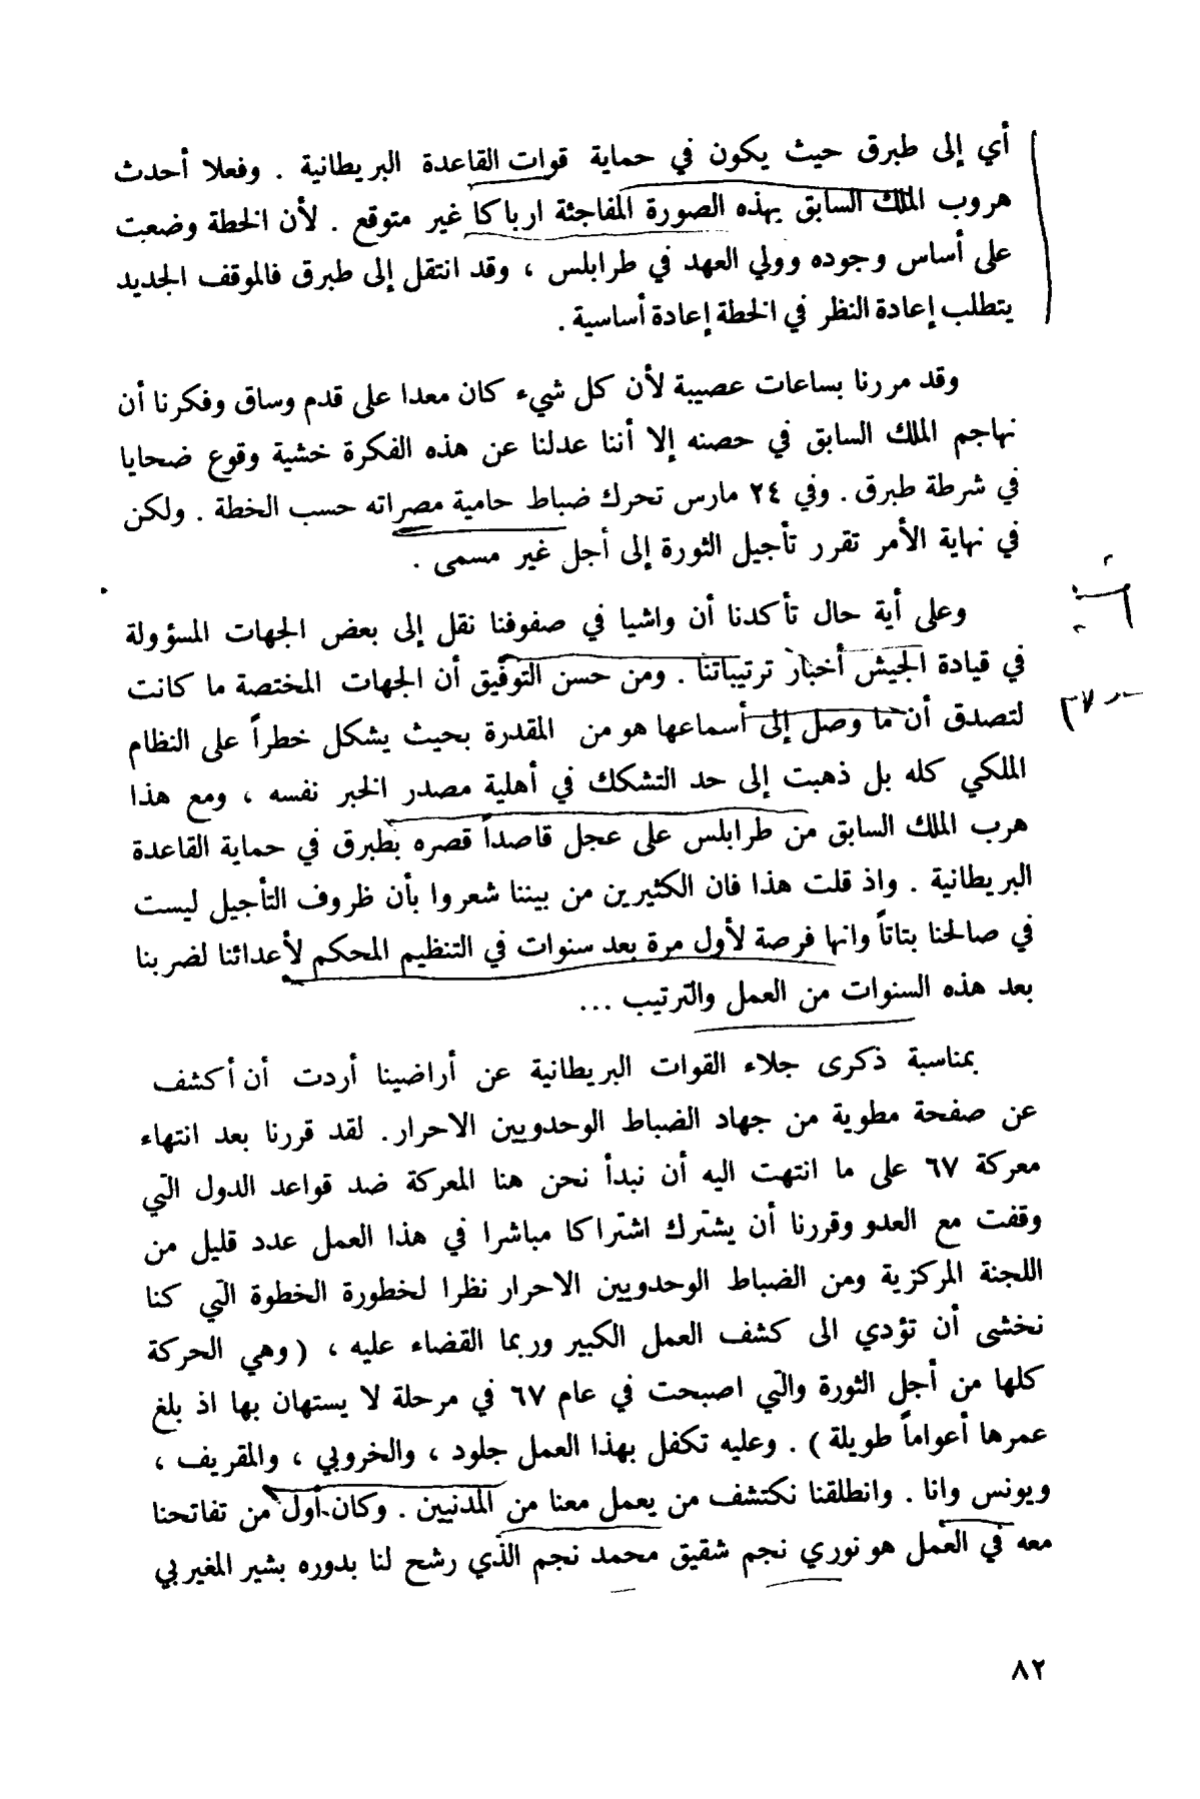 أي إلى طبرق حيث يكون في حماية قوات القاعدة البريطانية . وفعلا أحدث
هروب الملك السابق بهذه الصورة المفاجئة ارباكا غير متوقع . لأن الخطة وضعت
على أساس وجوده وولي العهد في طرابلس ، وقد انتقل إلى طبرق فالموقف الجديد
يتطلب إعادة النظر في الخطة إعادة أساسية .
وقد مررنا بساعات عصيبة لأن كل شيء كان معدا على قدم وساق وفكرنا أن
نهاجم الملك السابق في حصنه إلا أننا عدلنا عن هذه الفكرة خشية وقوع ضحايا
في شرطة طبرق . وفي ٢٤ مارس تحرك ضباط حامية مصراته حسب الخطة . ولكن
في نهاية الأمر تقرر تأجيل الثورة إلى أجل غير مسمى .
وعلى أية حال تأكدنا أن واشيا في صفوفنا نقل إلى بعض الجهات المسؤولة
في قيادة الجيش أخبار ترتيباتنا . ومن حسن التوفيق أن الجهات المختصة ما كانت
لتصدق أن ما وصل إلى أسماعها هو من المقدرة بحيث يشكل خطراً على النظام
الملكي كله بل ذهبت إلى حد التشكك في أهلية مصدر الخبر نفسه ، ومع هذا
هرب الملك السابق من طرابلس على عجل قاصداً قصره بطبرق في حماية القاعدة
البريطانية . واذ قلت هذا فان الكثيرين من بيننا شعروا بأن ظروف التأجيل ليست
في صالحنا بتاتاً وانها فرصة لأول مرة بعد سنوات في التنظيم المحكم لأعدائنا لضربنا
بعد هذه السنوات من العمل والترتيب ...
بمناسبة ذكرى جلاء القوات البريطانية عن أراضينا أردت أن أكشف
عن صفحة مطوية من جهاد الضباط الوحدويين الاحرار. لقد قررنا بعد انتهاء
معركة ٦٧ على ما انتهت اليه أن نبدأ نحن هنا المعركة ضد قواعد الدول التي
وقفت مع العدو وقررنا أن يشترك اشتراكا مباشرا في هذا العمل عدد قليل من
اللجنة المركزية ومن الضباط الوحدويين الاحرار نظرا لخطورة الخطوة التي كنا
نخشى أن تؤدي الى كشف العمل الكبير وربما القضاء عليه ، ( وهي الحركة
كلها من أجل الثورة والتي اصبحت في عام ٦٧ في مرحلة لا يستهان بها اذ بلغ
عمرها أعواماً طويلة ) . وعليه تكفل بهذا العمل جلود ، والخروبي ، والمقريف ،
ويونس وانا . وانطلقنا نكتشف من يعمل معنا من المدنيين . وكان أول من تفاتحنا
معه في العمل هو نوري نجم شقيق محمد نجم الذي رشح لنا بدوره بشير المغيربي
٨٢